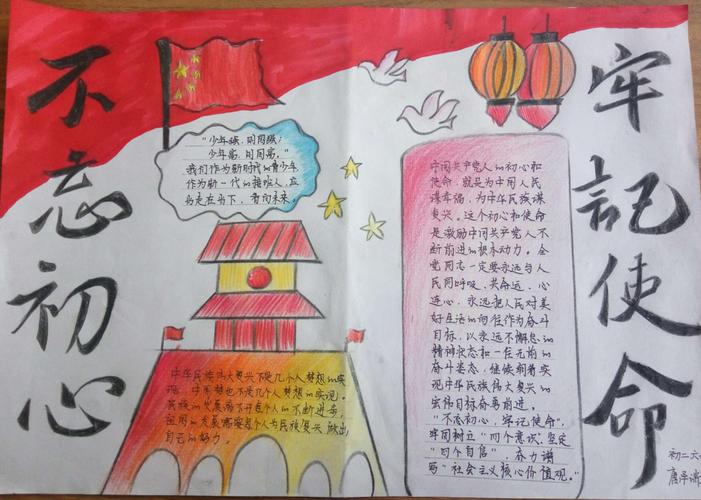 不忘初心
牢记使命
“少年强,则国强;
少年富,则国富。”
我们作为新时代的青少年
作为新一代的接班人,应
当走在当下,看向未来。
中华民族伟大复兴不是几个人梦想的实
现,中国梦也不是几个人梦想的实现。
民族的发展离不开每个人的不断进步,
祖国的发展需要每个人为民族复兴做出
自己的努力。
中国共产党人的初心和
使命,就是为中国人民
谋幸福,为中华民族谋
复兴。这个初心和使命
是激励中国共产党人不
断前进的根本动力。全
党同志一定要永远与人
民同呼吸、共命运、心
连心,永远把人民对美
好生活的向往作为奋斗
目标,以永远不懈怠的
精神状态和一往无前的
奋斗姿态,继续朝着实
现中华民族伟大复兴的
宏伟目标奋勇前进。
“不忘初心,牢记使命”,
牢固树立“四个意识”,坚定
“四个自信”,奋力谱
写“社会主义核心价值观。”
初二六
唐